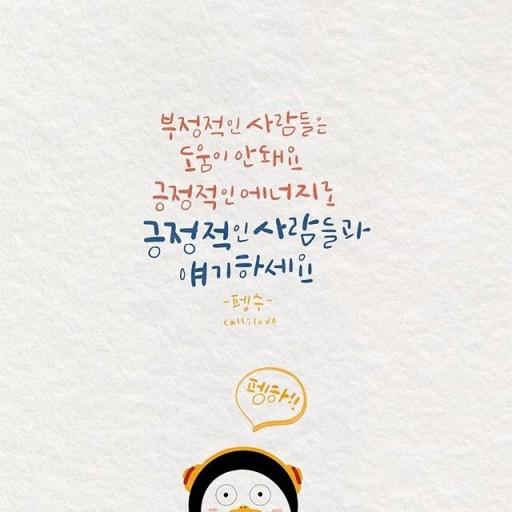 부정적인 사람들은
도움이 안돼요
긍정적인 에너지로
긍정적인 사람들과
얘기하세요
-펭수-
calliluve
펭하!!